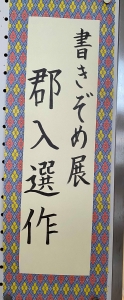 書きぞめ展
郡入選作